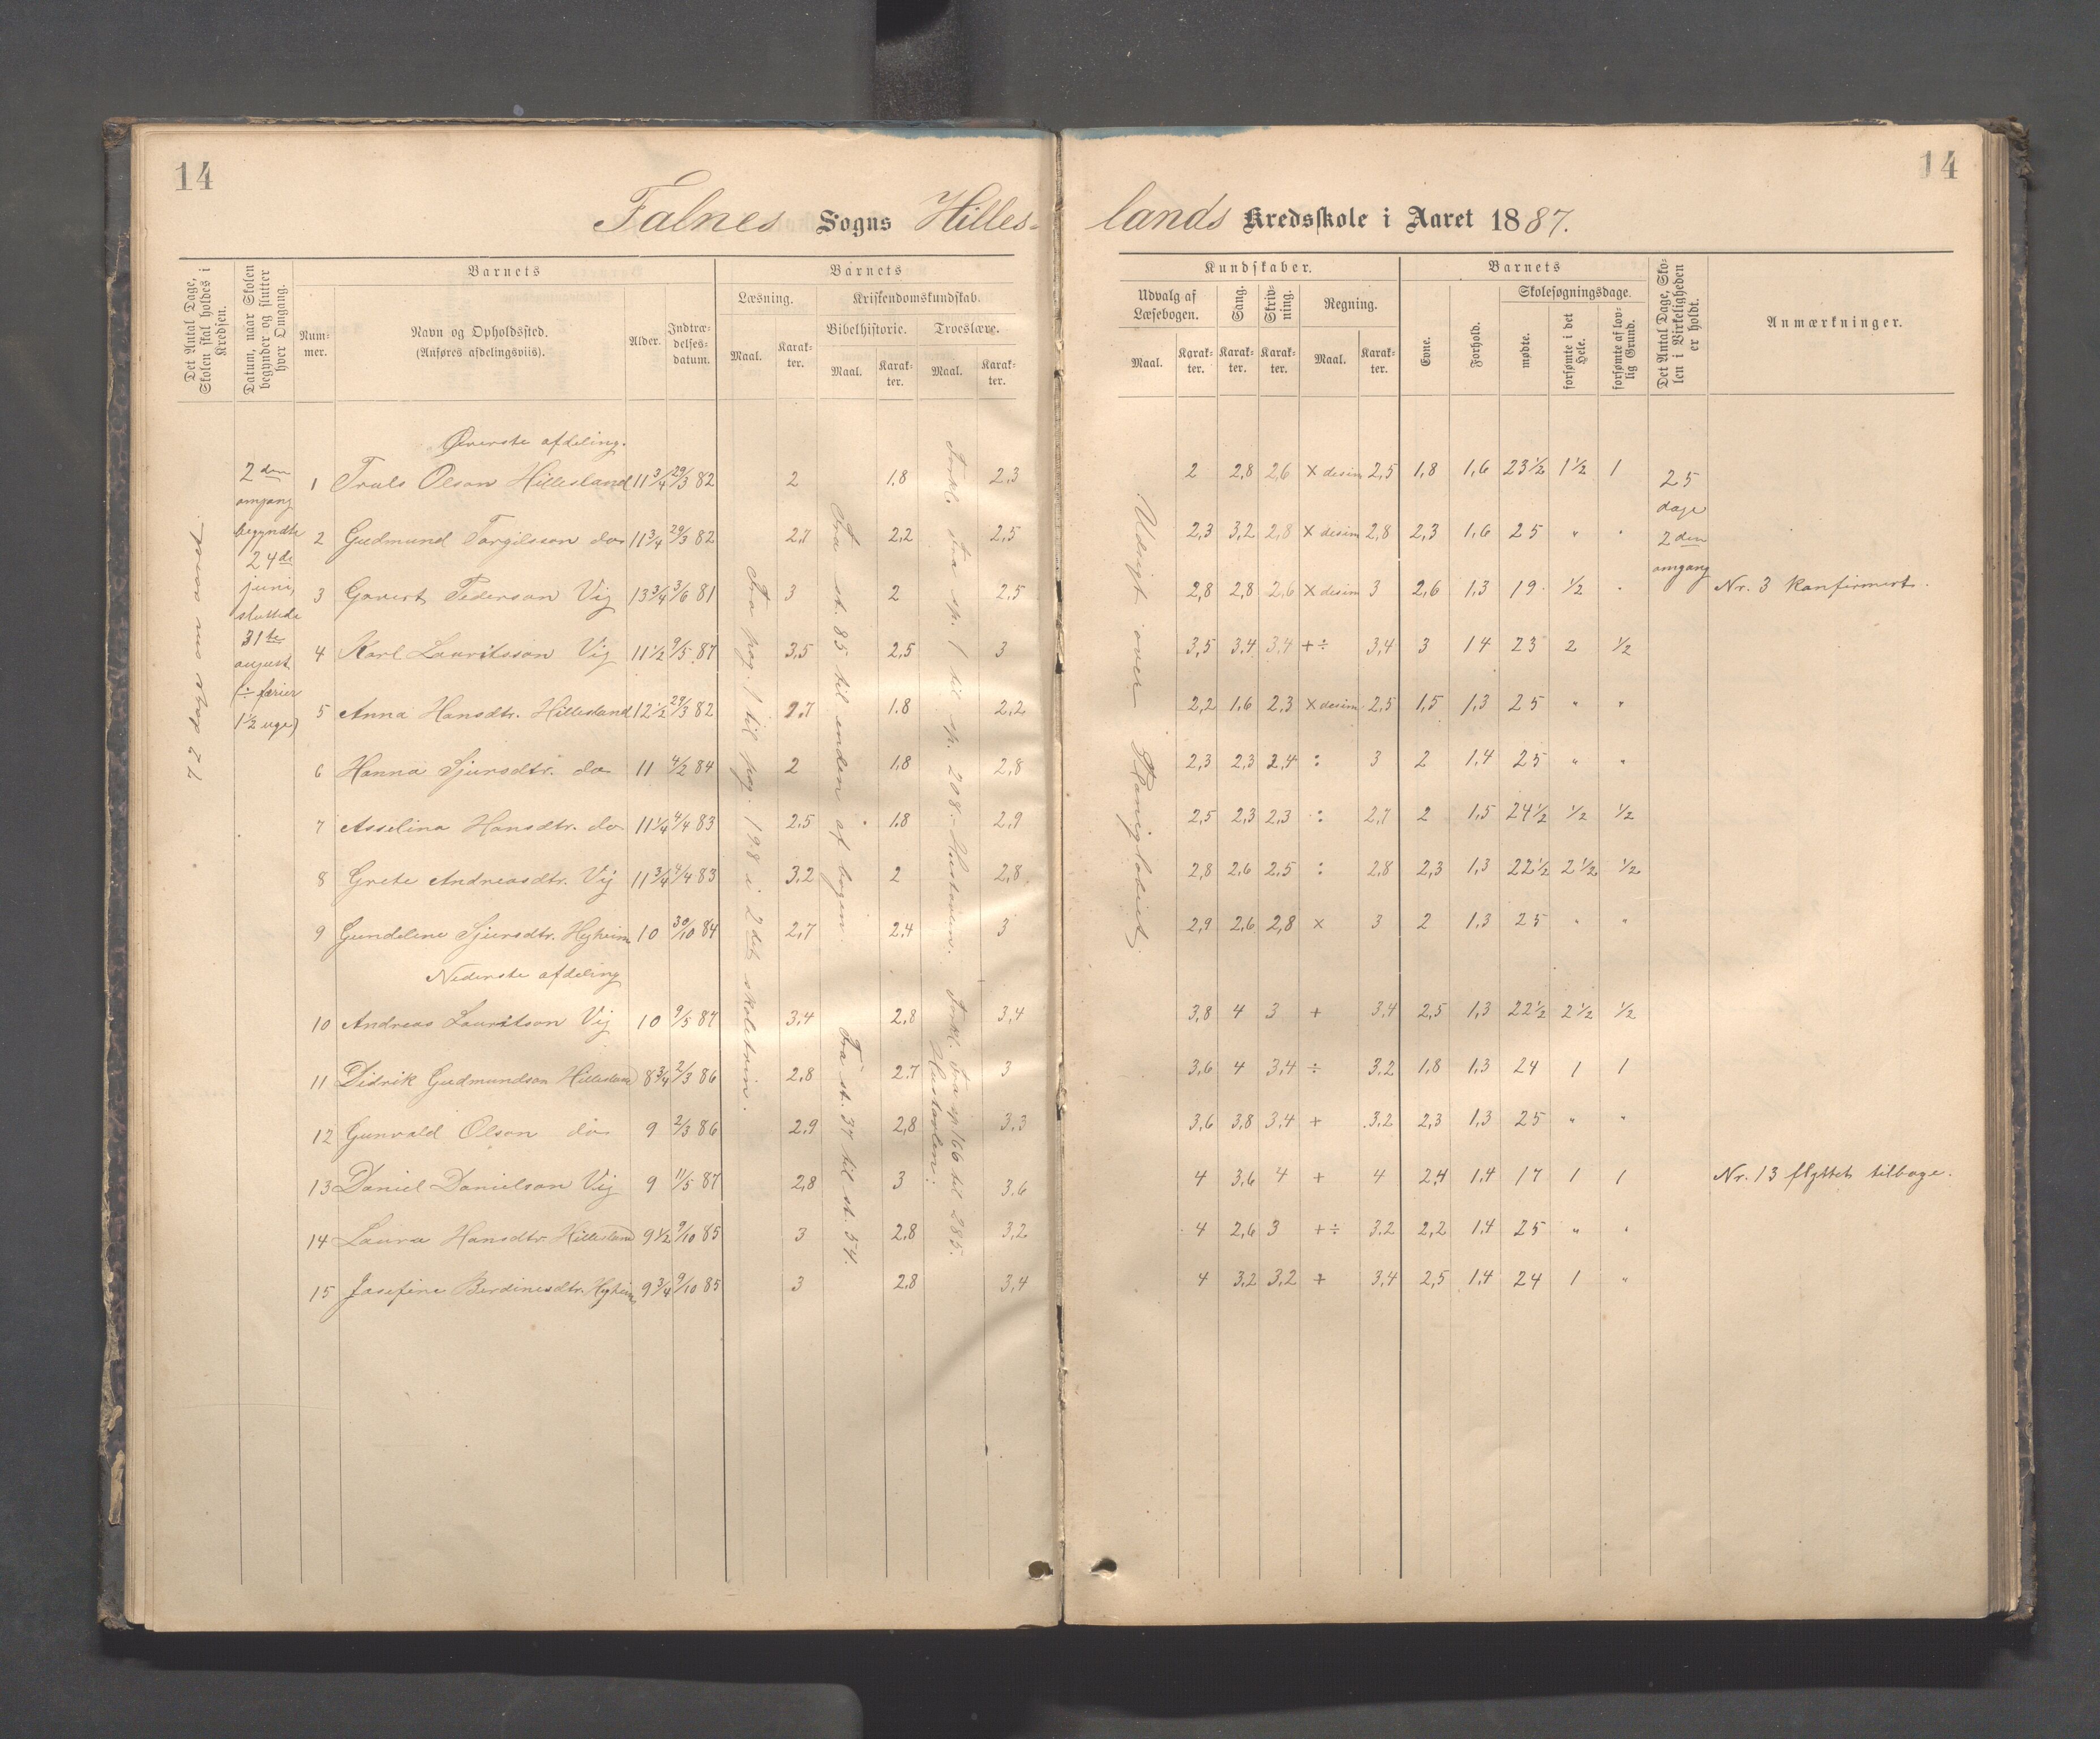 14
14
Falnes Sogns Hilles-
lands Kredsskole i Aaret 1887.
Det Antal Dage, Skolen skal holdes i Kredsen.
Datum, naar Skolen begynder og slutter hver Omgang.
Barnets
Nummer.
Navn og Opholdssted. (Anføres afdelingsviis).
Alder.
Indtrædelsesdatum.
Barnets
Læsning.
Maal.
Karakter.
Kristendomskundskab.
Bibelhistorie.
Maal.
Karakter.
Troeslære.
Maal.
Karakter.
Kundskaber.
Udvalg af Læsebogen.
Maal.
Karakter.
Sang.
Karakter.
Skrivning.
Karakter.
Regning.
Maal.
Karakter.
Barnets
Evne.
Forhold.
Skolesøgningsdage.
mødte.
forsømte i det Hele.
forsømte af lovlig Grund.
Det Antal Dage, Skolen i Virkeligheden er holdt.
Anmærkninger.
2den
omgang
begyndte
24de
juni,
sluttede
31te
august.
(÷ ferier
1½ uge)
Øverste afdeling.
1 Truls Olson Hillesland 11¾ 29/3 82 2 1.8 2.3 2 2,8 2,6 × desim 2,5 1,8 1,6 23½ 1½ 1
2 Gudmund Torgilsson do 11¾ 29/3 82 2,7 2,2 2,5 2,3 3,2 2,8 × desim 2,8 2,3 1,6 25 " "
3 Govert Pederson Vig 13¾ 3/6 81 3 2 2,5 2,8 2,8 2,6 × desim 3 2,6 1,3 19 ½ " Nr. 3 konfirmert.
4 Karl Lauritsson Vig 11½ 9/5 87 3,5 2,5 3 3,5 3,4 3,4 +÷ 3,4 3 14 23 2 ½
5 Anna Hansdtr. Hillesland 12½ 29/3 82 2.7 1.8 2,2 2,2 1,6 2,3 × desim 2,5 1,5 1,3 25 " "
6 Hanna Sjursdtr. do 11 4/2 84 2 1,8 2,8 2,3 2,3 2,4 : 3 2 1,4 25 " "
7 Asselina Hansdtr. do 11¼ 4/4 83 2,5 1.8 2,9 2,5 2,3 2,3 : 2,7 2 1,5 24½ ½ ½
8 Grete Andreasdtr. Vig 11¾ 4/4 83 3,2 2 2,8 2,8 2,6 2,5 : 2,8 2,3 1,3 22½ 2½ ½
9 Gundeline Sjursdtr. Hyheim 10 30/10 84 2,7 2.4 3 2,9 2,6 2,8 × 3 2 1,3 25 " "
Nederste afdeling
10 Andreas Lauritson Vig 10 9/5 87 3,4 2,8 3,4 3,8 4 3 + 3,4 2,5 1,3 22½ 2½ ½
11 Didrik Gudmundson Hillesland 8¾ 2/3 86 2,8 2.7 3 3,6 4 3,4 ÷ 3.2 1,8 1,3 24 1 1
12 Gunvald Olson do 9 2/3 86 2,9 2,8 3,3 3,6 3,8 3,4 + 3,2 2,3 1,3 25 " "
13 Daniel Danielson Vig 9 11/5 87 2,8 3 3,6 4 3,6 4 + 4 2,4 1,4 17 1 1 Nr. 13 flyttet tilbage.
14 Laura Hansdtr. Hillesland 9½ 9/10 85 3 2,8 3,2 4 2,6 3 +÷ 3,2 2,2 1,4 25 " "
15 Josefine Berdinesdtr. Hyheim 9¾ 9/10 85 3 2,8 3,4 4 3,2 3,2 + 3,4 2,5 1,4 24 1 "
Fra pag. 1 til pag. 198 i 2det skoletrin.
Fra st. 85 til enden af bogen.
Fra st. 37 til st. 54.
Forkl. Fra sp. 1 til sp. 208. Hustavlen.
Forkl. Fra sp 166 til 285.
Hustavlen.
Udsigt over
25
dage
2den
omgang